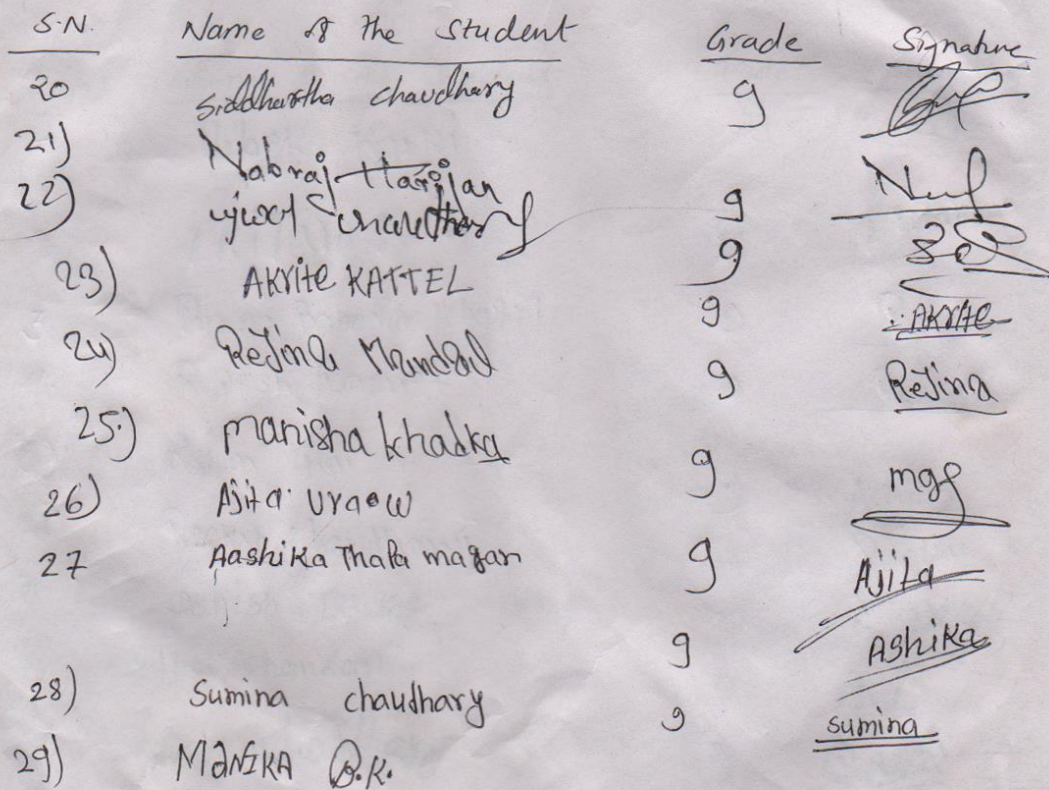 S.N. Name of the Student Grade Signature
20 Siddhartha Chaudhary 9
21) Nabraj Harijan 9
22) ujwol Chaudhary 9
23) AKrite KATTEL 9 AKrite
24) Rejina Mandal 9 Rejina
25.) manisha khadka 9 mgf
26) Ajita uraow 9 Ajita
27 Aashika Thapa magar 9 Ashika
28) Sumina chaudhary 9 sumina
29) MaNIKA B.K.